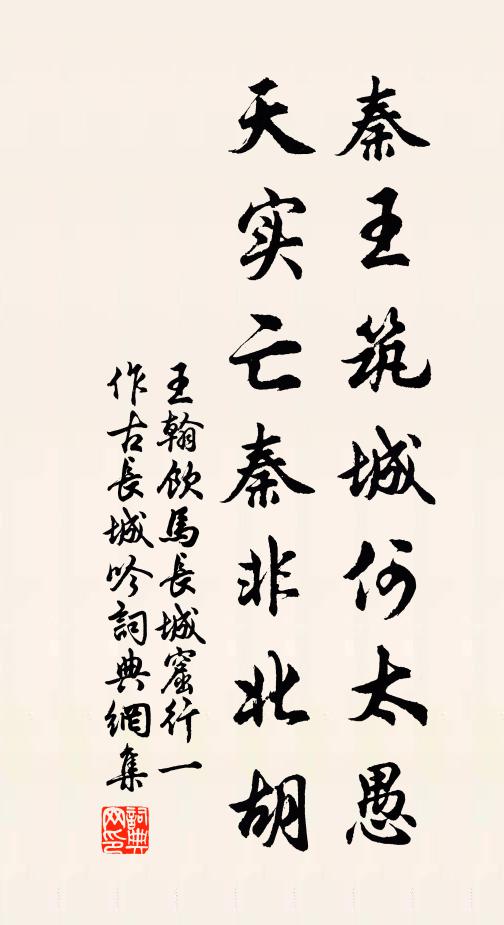 秦王筑城何太愚
天实亡秦非北胡
王翰飲馬長城窟行一
作古長城吟詞典網集
詞典
网印